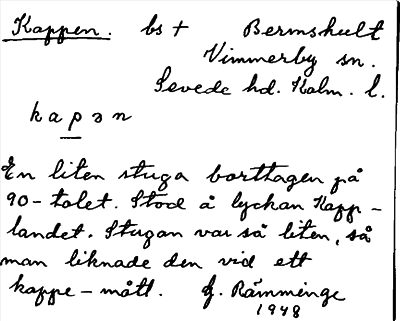 Kappen. bs + Bermshult
Vimmerby sn.
Sevede hd. Kalm. l.
kapən
En liten stuga borttagen på
90-talet. Stod å lyckan Kapp-
landet. Stugan var så liten, så
man liknade den vid ett
kappe-mått. G. Rämminge
1948